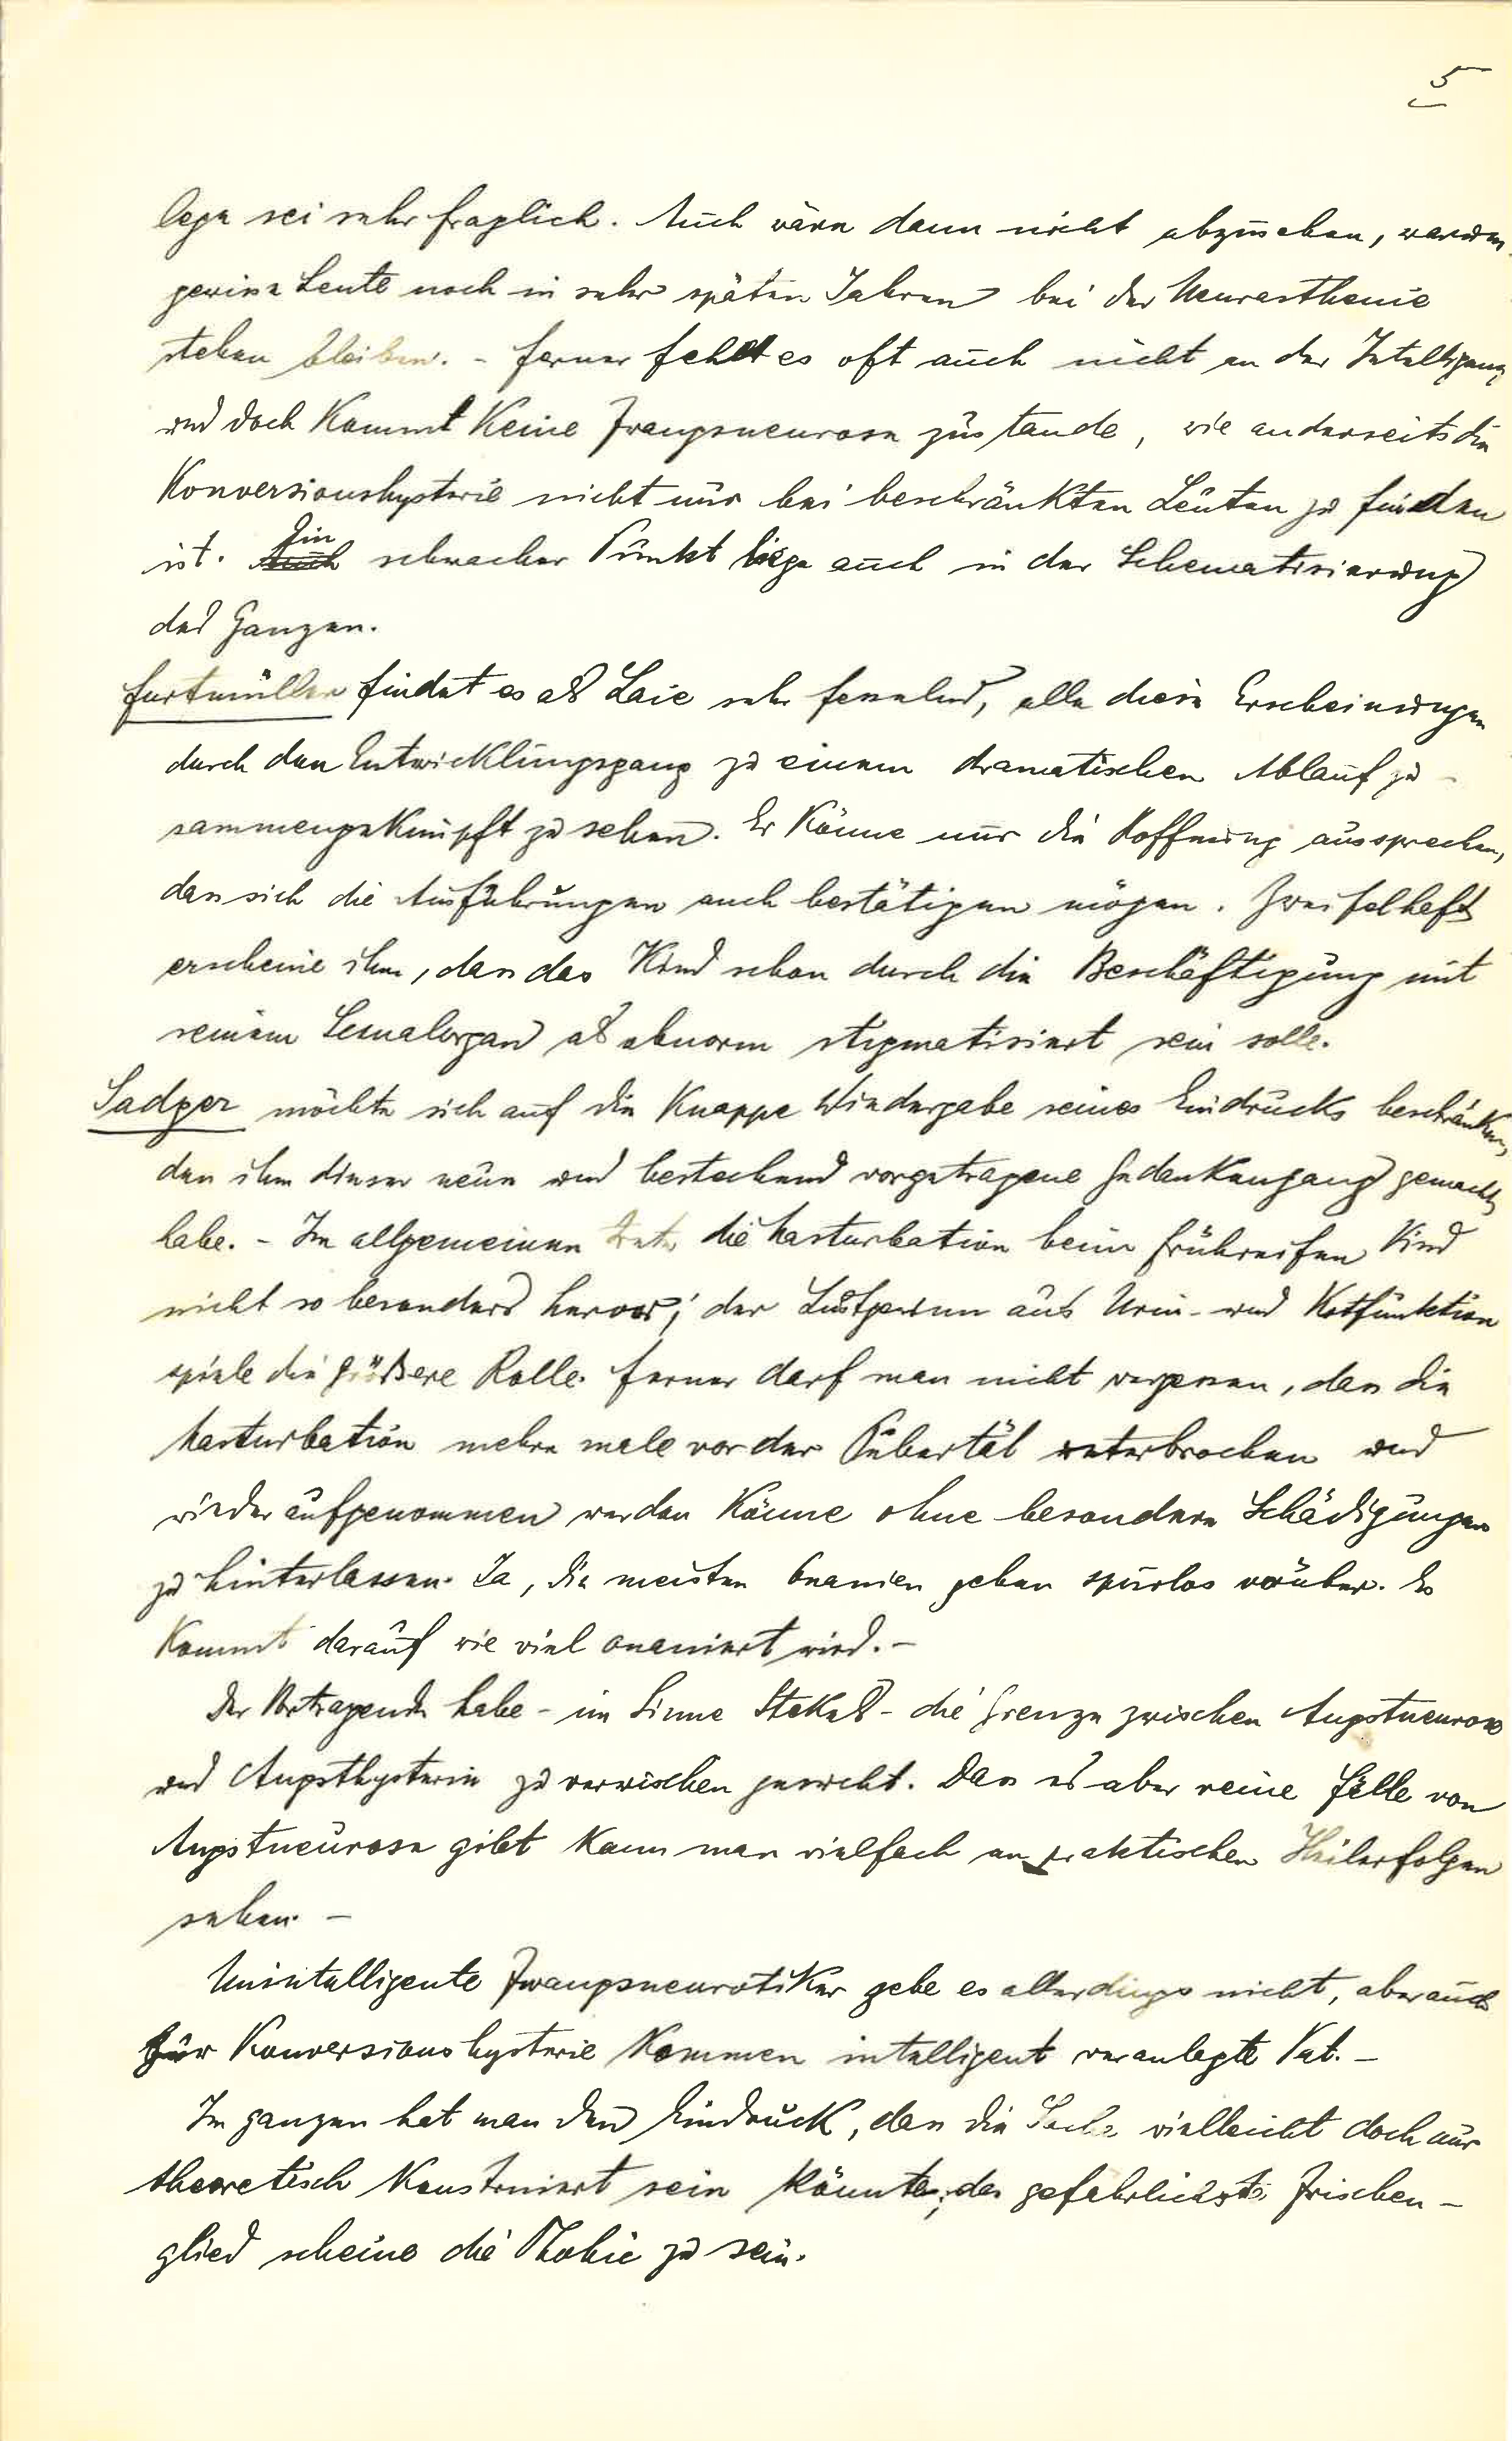 5
lege sei sehr fraglich. Auch wäre dann nicht abzusehen, warum
gewisse Leute noch in sehr späten Jahren bei der Neurasthenie
stehen bleiben. - Ferner fehlt es oft auch nicht an der Intelligenz
und doch kommt keine Zwangsneurose zustande, wie anderseits die
Konversionshysterie nicht nur bei beschränkten Leuten zu finden
ist. Ein schwacher Punkt liege auch in der Schematisierung
des Ganzen.
Furtmüller findet es als Laie sehr fesselnd, alle diese Erscheinungen
durch den Entwicklungsgang zu einem dramatischen Ablauf zu-
sammengeknüpft zu sehen. Er könne nur die Hoffnung aussprechen,
dass sich die Ausführungen auch bestätigen mögen. Zweifelhaft
erscheine ihm, dass das Kind schon durch die Beschäftigung mit
seinem Sexualorgan als abnorm stigmatisiert sein solle.
Sadger möchte sich auf die knappe Wiedergabe seines Eindrucks beschränken,
den ihm dieser neue und bestechend vorgetragene Gedankengang gemacht
habe. - Im allgemeinen trete die Masturbation beim frühreifen Kind
nicht so besonders hervor; der Lustgewinn aus Urin- und Kotfunktion
spiele die größere Rolle. Ferner darf man nicht vergessen, dass die
Masturbation mehre male vor der Pubertät unterbrochen und
wieder aufgenommen werden könne ohne besondere Schädigungen
zu hinterlassen. Ja, die meisten Onanien gehen spurlos vorüber. Es
kommt darauf wie viel onaniert wird. -
Der Vortragende habe - im Sinne Stekels - die Grenze zwischen Angstneurose
und Angsthysterie zu verwischen gesucht. Dass es aber reine Fälle von
Angstneurose gibt kann man vielfach an praktischen Heilerfolgen
sehen. -
Unintelligente Zwangsneurotiker gebe es allerdings nicht, aber auch
für Konversionshysterie kommen intelligent veranlagte Pat. -
Im ganzen hat man den Eindruck, dass die Sache vielleicht doch nur
theoretisch konstruiert sein könnte; das gefährlichste Zwischen-
glied scheine die Phobie zu sein.